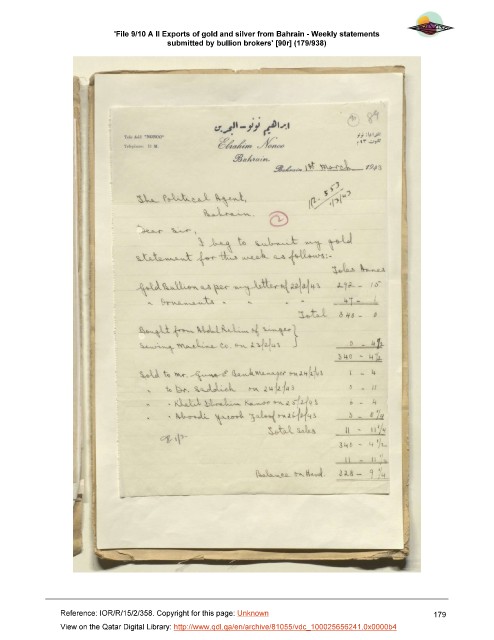 'File 9/10 A II Exports of gold and silver from Bahrain - Weekly statements
submitted by bullion brokers' [90r] (179/938)
89
ابراهيم نونو - البحرين
Ebrahim Nonoo
Bahrain.
Bahrain 1st March 1943
The Political Agent,
Bahrain.
2
Dear Sir,
I beg to submit my gold
statement for this week as follows:-
Tolas Annas
Gold Bullion as per my letter of 22/2/43 292 - 15
" Ornaments " " " " 47 - 1
Total 340 - 0
Bought from Abdul Rahim of Singer
Sewing Machine Co. on 23/2/43 0 - 4½
340 - 4½
Sold to Mr. Bank Manager on 24/2/43 1 - 4
" " Dr. Siddick on 24/2/43
" " Khalil Ebrahim Kanoo on 25/2/43
" " Yacoob on 26/2/43
Total sales 11 - 11¼
340 - 4½
11 - 11¼
Balance on Hand. 328 - 9¼
Reference: IOR/R/15/2/358. Copyright for this page: Unknown
179
View on the Qatar Digital Library: http://www.qdl.qa/en/archive/81055/vdc_100025656241.0x0000b4